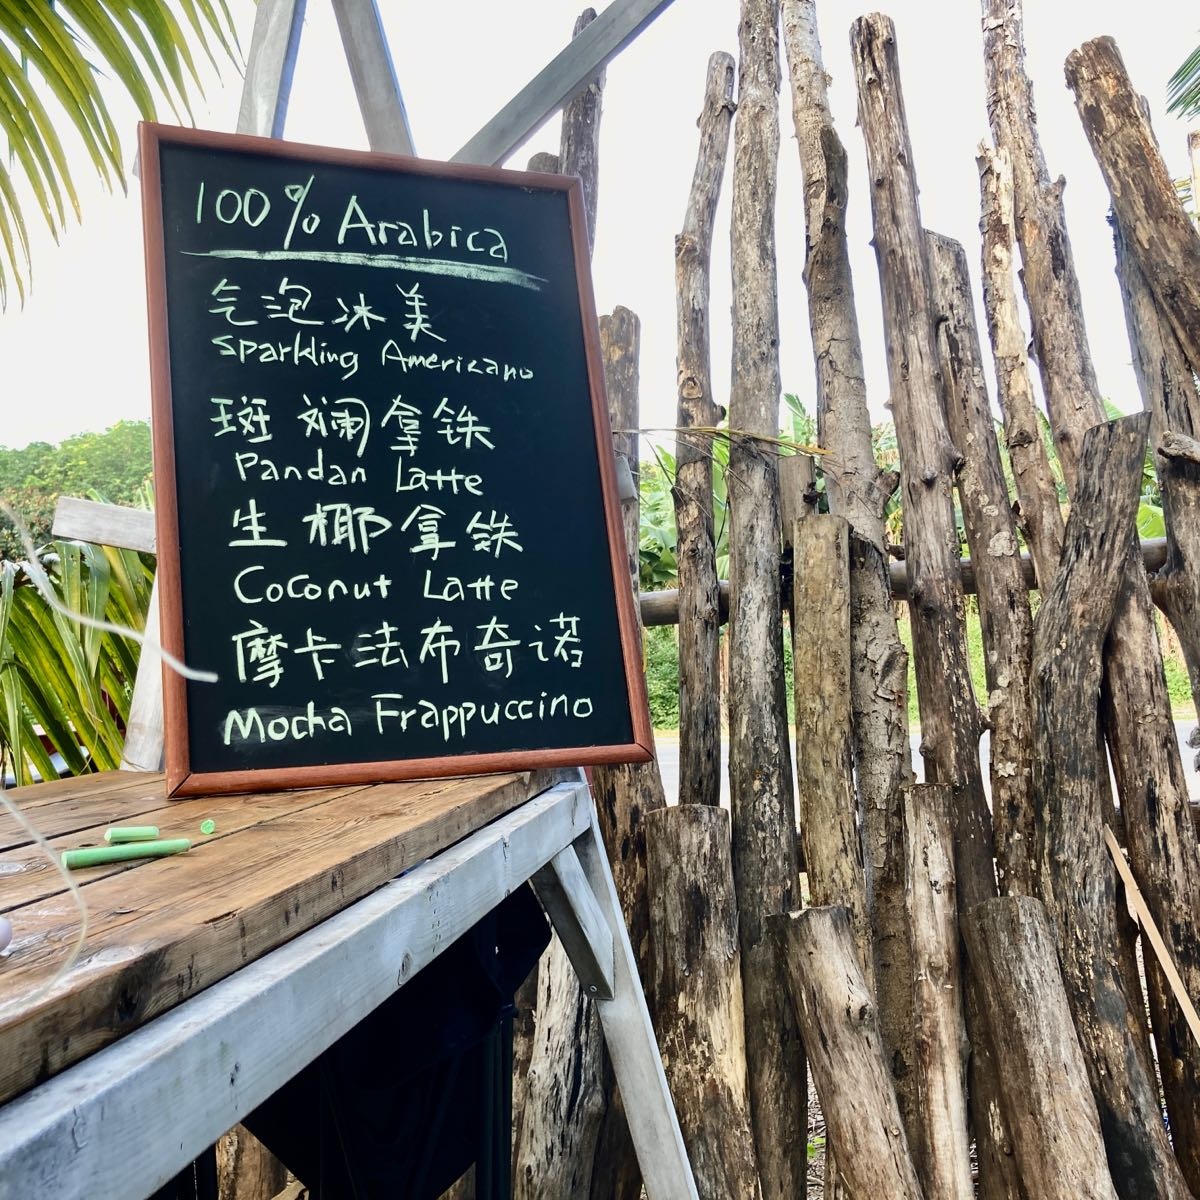 100% Arabica
气泡冰美
Sparkling Americano
斑斓拿铁
Pandan Latte
生椰拿铁
Coconut Latte
摩卡法布奇诺
Mocha Frappuccino